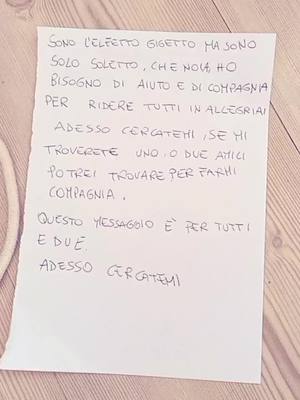 SONO L'ELFETTO GIGETTO MA SONO
SOLO SOLETTO, CHE NOIA, HO
BISOGNO DI AIUTO E DI COMPAGNIA
PER RIDERE TUTTI IN ALLEGRIA!
ADESSO CERCATEMI, SE MI
TROVERETE UNO O DUE AMICI
POTREI TROVARE PER FARMI
COMPAGNIA.
QUESTO MESSAGGIO È PER TUTTI
E DUE.
ADESSO CERCATEMI